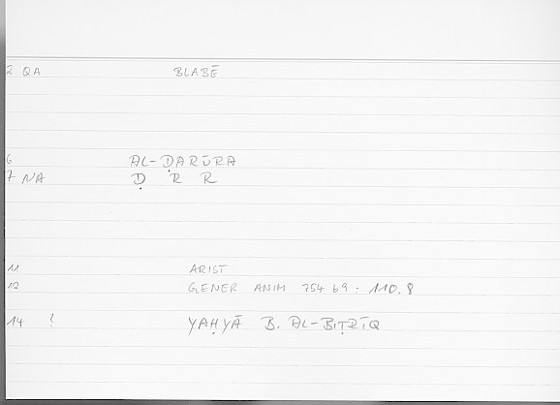 2 QA BLABĒ
6 AL-ḌARŪRA
7 NA Ḍ R R
11 ARIST
12 GENER ANIM 754 b9 : 110.8
14 ! YAḤYĀ B. AL-BIṬRĪQ